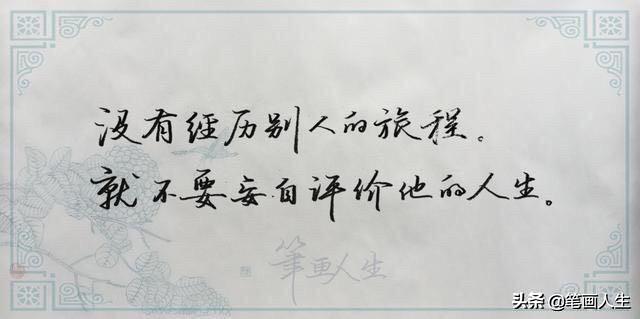 没有经历别人的旅程。
就不要妄自评价他的人生。
筆画人生
头条@笔画人生